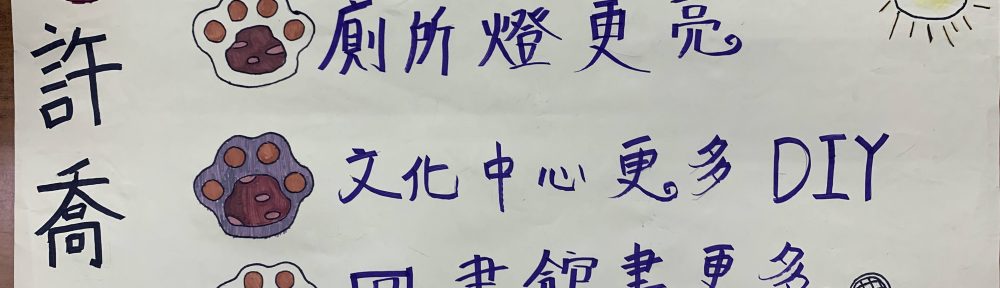 許喬
廁所燈更亮
文化中心更多DIY
圖書館書更多